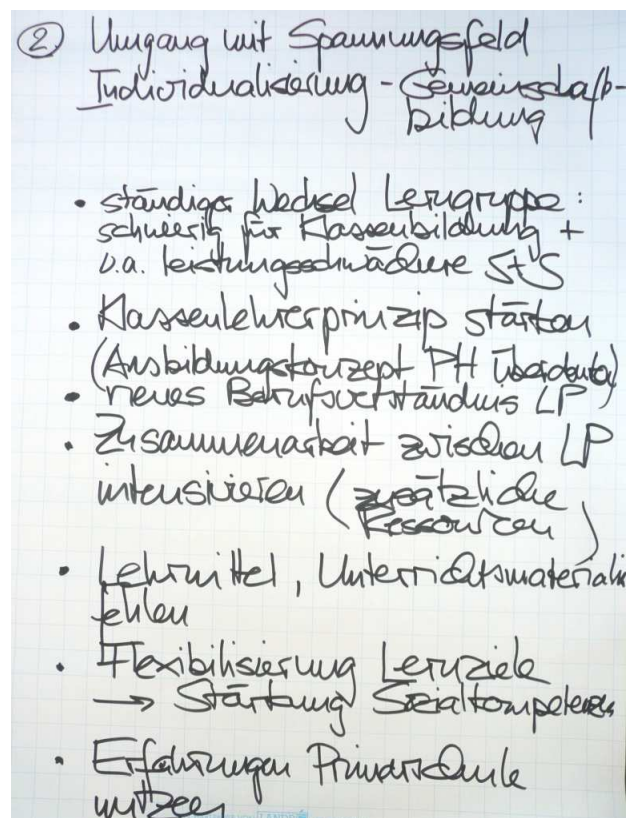 ② Umgang mit Spannungsfeld
Individualisierung - Gemeinschaft-
bildung
• ständiger Wechsel Lerngruppe :
schwierig für Klassenbildung +
v.a. leistungsschwächere S+S
• Klassenlehrerprinzip stärken
(Ausbildungskonzept PH überdenken)
• neues Berufsverständnis LP
• Zusammenarbeit zwischen LP
intensivieren (zusätzliche
Ressourcen)
• Lehrmittel, Unterrichtsmaterialien
fehlen
• Flexibilisierung Lernziele
→ Stärkung Sozialkompetenz
• Erfahrungen Primarschule
nutzen